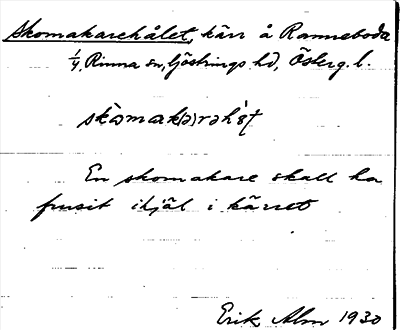 Skomakarehålet, kärr å Ramneboda
1/4, Rinna sn, Göstrings hd, Österg. l.
En skomakare skall ha
frusit ihjäl i kärret
Erik Alm 1930